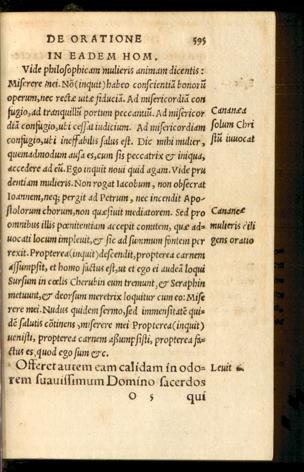 DE ORATIONE 595
IN EADEM HOM.
Vide philosophicam mulieris animam dicentis:
Miserere mei. Nō (inquit) habeo conscientiā bonorū
operum, nec rectæ vitæ fiduciā. Ad misericordiā con
fugio, ad tranquillū portum peccantiū. Ad misericor
diā confugio, ubi cessat iudicium. Ad misericordiam
confugio, ubi ineffabilis salus est. Dic mihi mulier,
quemadmodum ausa es, cum sis peccatrix & iniqua,
accedere ad eū. Ego inquit noui quid agam. Vide pru
dentiam mulieris. Non rogat Iacobum, non obsecrat
Ioannem, neq; pergit ad Petrum, nec inendit Apo-
stolorum chorum, non quæsiuit mediatorem. Sed pro
omnibus illis pœnitentiam accepit comitem, quæ ad-
uocati locum impleuit, & sic ad summum fontem per
rexit. Propterea (inquit) descendit, propterea carnem
assumpsit, et homo factus est, ut et ego ei audeā loqui
Sursum in cœlis Cherubin eum tremunt, & Seraphin
metuunt, & deorsum meretrix loquitur cum eo: Mise
rere mei. Nudus quidem sermo, sed immensitatē qui-
dē salutis cōtinens, miserere mei Propterea (inquit)
uenisti, propterea carnem assumpsisti, propterea fa-
ctus es, quod ego sum &c.
Offeret autem eam calidam in odo-
rem suauissimum Domino sacerdos
O 5 qui
Cananæa
solum Chri
stū inuocat
Cananeæ
mulieris dili
gens oratio
Leuit